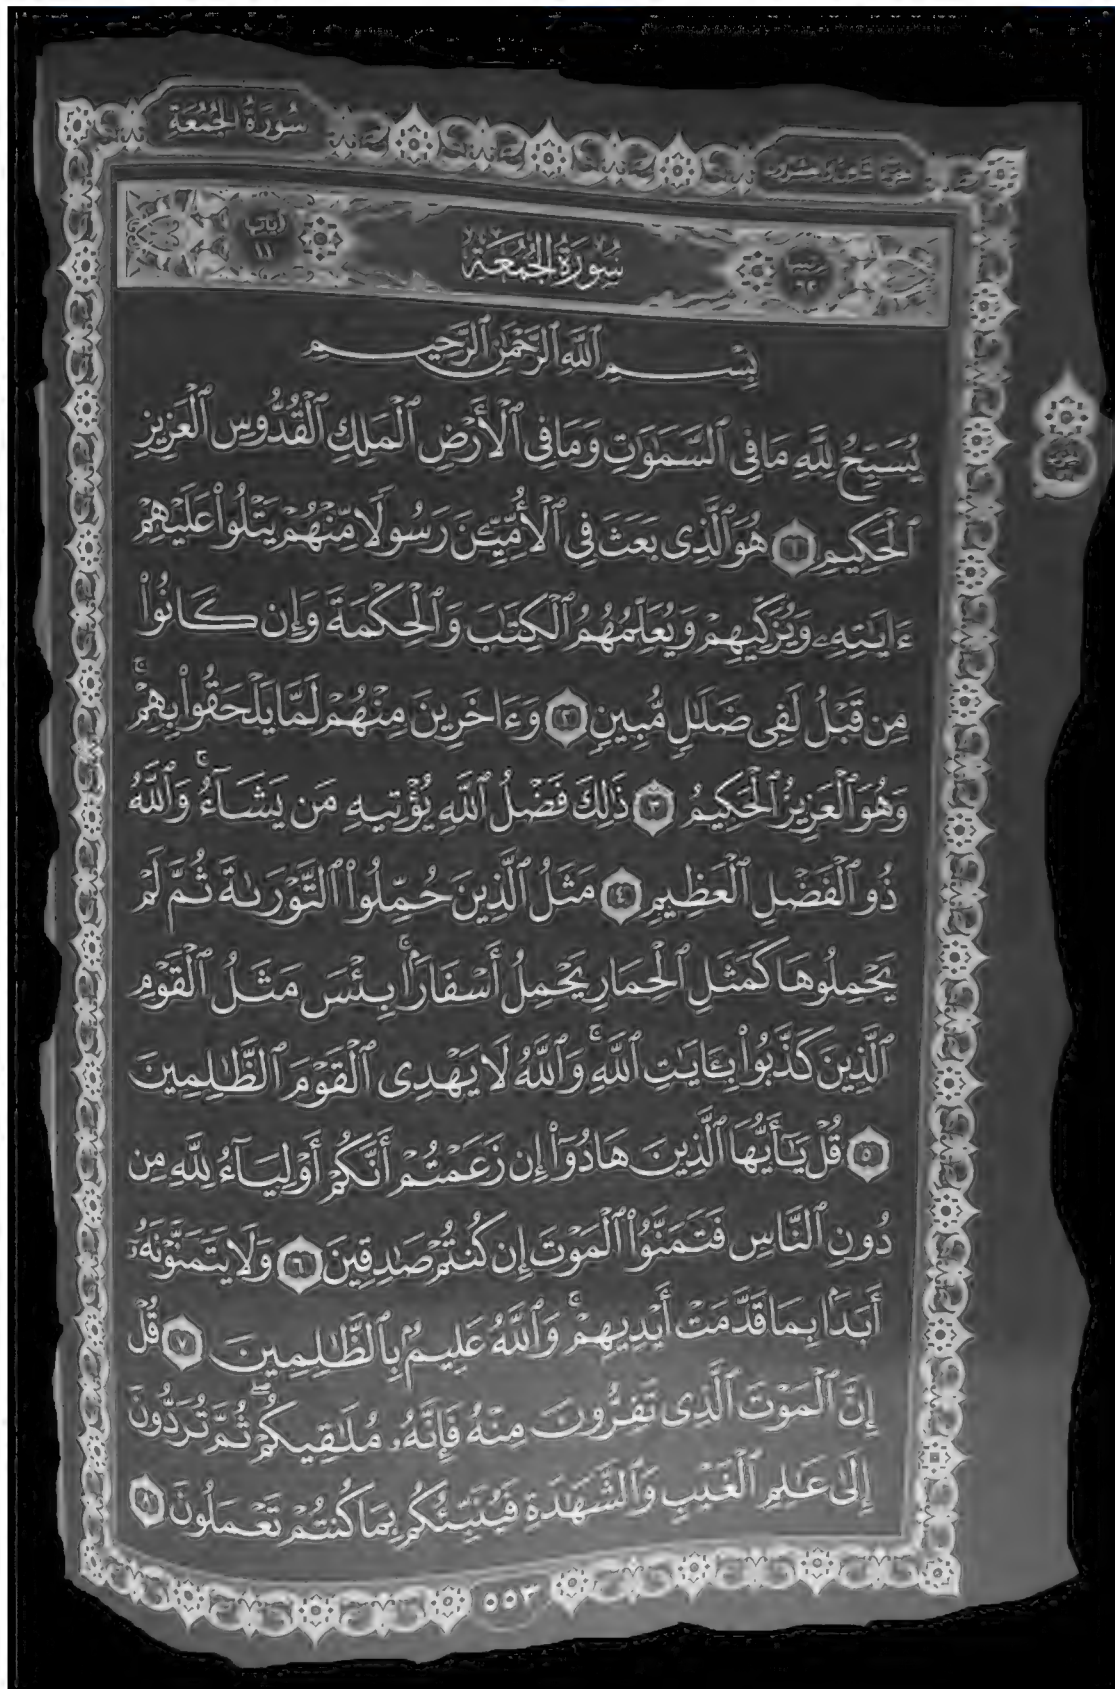 سُورَةُ الجُمُعَةِ
آيَاتُهَا ١١
سُورَةُ الجُمُعَةِ
بِسْمِ ٱللَّهِ ٱلرَّحْمَٰنِ ٱلرَّحِيمِ
يُسَبِّحُ لِلَّهِ مَا فِى ٱلسَّمَٰوَٰتِ وَمَا فِى ٱلْأَرْضِ ٱلْمَلِكِ ٱلْقُدُّوسِ ٱلْعَزِيزِ
ٱلْحَكِيمِ ١ هُوَ ٱلَّذِى بَعَثَ فِى ٱلْأُمِّيِّۦنَ رَسُولًا مِّنْهُمْ يَتْلُوا۟ عَلَيْهِمْ
ءَايَٰتِهِۦ وَيُزَكِّيهِمْ وَيُعَلِّمُهُمُ ٱلْكِتَٰبَ وَٱلْحِكْمَةَ وَإِن كَانُوا۟
مِن قَبْلُ لَفِى ضَلَٰلٍ مُّبِينٍ ٢ وَءَاخَرِينَ مِنْهُمْ لَمَّا يَلْحَقُوا۟ بِهِمْ ۚ
وَهُوَ ٱلْعَزِيزُ ٱلْحَكِيمُ ٣ ذَٰلِكَ فَضْلُ ٱللَّهِ يُؤْتِيهِ مَن يَشَآءُ ۚ وَٱللَّهُ
ذُو ٱلْفَضْلِ ٱلْعَظِيمِ ٤ مَثَلُ ٱلَّذِينَ حُمِّلُوا۟ ٱلتَّوْرَىٰةَ ثُمَّ لَمْ
يَحْمِلُوهَا كَمَثَلِ ٱلْحِمَارِ يَحْمِلُ أَسْفَارًۢا ۚ بِئْسَ مَثَلُ ٱلْقَوْمِ
ٱلَّذِينَ كَذَّبُوا۟ بِـَٔايَٰتِ ٱللَّهِ ۚ وَٱللَّهُ لَا يَهْدِى ٱلْقَوْمَ ٱلظَّٰلِمِينَ
٥ قُلْ يَٰٓأَيُّهَا ٱلَّذِينَ هَادُوٓا۟ إِن زَعَمْتُمْ أَنَّكُمْ أَوْلِيَآءُ لِلَّهِ مِن
دُونِ ٱلنَّاسِ فَتَمَنَّوُا۟ ٱلْمَوْتَ إِن كُنتُمْ صَٰدِقِينَ ٦ وَلَا يَتَمَنَّوْنَهُۥٓ
أَبَدًۢا بِمَا قَدَّمَتْ أَيْدِيهِمْ ۚ وَٱللَّهُ عَلِيمٌۢ بِٱلظَّٰلِمِينَ ٧ قُلْ
إِنَّ ٱلْمَوْتَ ٱلَّذِى تَفِرُّونَ مِنْهُ فَإِنَّهُۥ مُلَٰقِيكُمْ ۖ ثُمَّ تُرَدُّونَ
إِلَىٰ عَٰلِمِ ٱلْغَيْبِ وَٱلشَّهَٰدَةِ فَيُنَبِّئُكُم بِمَا كُنتُمْ تَعْمَلُونَ ٨
٥٥٣